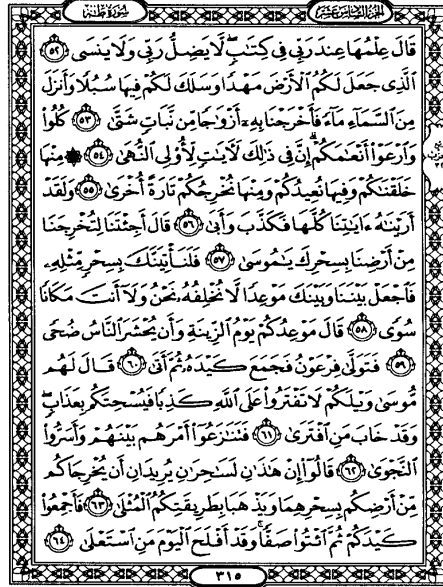 الجزء السادس عشر سورة طه
قَالَ عِلْمُهَا عِندَ رَبِّي فِي كِتَٰبٍۖ لَّا يَضِلُّ رَبِّي وَلَا يَنسَى ٥٢
ٱلَّذِي جَعَلَ لَكُمُ ٱلْأَرْضَ مَهْدًا وَسَلَكَ لَكُمْ فِيهَا سُبُلًا وَأَنزَلَ
مِنَ ٱلسَّمَآءِ مَآءً فَأَخْرَجْنَا بِهِۦٓ أَزْوَٰجًا مِّن نَّبَاتٍ شَتَّىٰ ٥٣ كُلُوا۟
وَٱرْعَوْا۟ أَنْعَٰمَكُمْۗ إِنَّ فِي ذَٰلِكَ لَءَايَٰتٍ لِّأُو۟لِي ٱلنُّهَىٰ ٥٤ ۞ مِنْهَا
خَلَقْنَٰكُمْ وَفِيهَا نُعِيدُكُمْ وَمِنْهَا نُخْرِجُكُمْ تَارَةً أُخْرَىٰ ٥٥ وَلَقَدْ
أَرَيْنَٰهُ ءَايَٰتِنَا كُلَّهَا فَكَذَّبَ وَأَبَىٰ ٥٦ قَالَ أَجِئْتَنَا لِتُخْرِجَنَا
مِنْ أَرْضِنَا بِسِحْرِكَ يَٰمُوسَىٰ ٥٧ فَلَنَأْتِيَنَّكَ بِسِحْرٍ مِّثْلِهِۦ
فَٱجْعَلْ بَيْنَنَا وَبَيْنَكَ مَوْعِدًا لَّا نُخْلِفُهُۥ نَحْنُ وَلَآ أَنتَ مَكَانًا
سُوًى ٥٨ قَالَ مَوْعِدُكُمْ يَوْمُ ٱلزِّينَةِ وَأَن يُحْشَرَ ٱلنَّاسُ ضُحًى
٥٩ فَتَوَلَّىٰ فِرْعَوْنُ فَجَمَعَ كَيْدَهُۥ ثُمَّ أَتَىٰ ٦٠ قَالَ لَهُم
مُّوسَىٰ وَيْلَكُمْ لَا تَفْتَرُوا۟ عَلَى ٱللَّهِ كَذِبًا فَيُسْحِتَكُم بِعَذَابٍۖ
وَقَدْ خَابَ مَنِ ٱفْتَرَىٰ ٦١ فَتَنَٰزَعُوٓا۟ أَمْرَهُم بَيْنَهُمْ وَأَسَرُّوا۟
ٱلنَّجْوَىٰ ٦٢ قَالُوٓا۟ إِنْ هَٰذَٰنِ لَسَٰحِرَٰنِ يُرِيدَانِ أَن يُخْرِجَاكُم
مِّنْ أَرْضِكُم بِسِحْرِهِمَا وَيَذْهَبَا بِطَرِيقَتِكُمُ ٱلْمُثْلَىٰ ٦٣ فَأَجْمِعُوا۟
كَيْدَكُمْ ثُمَّ ٱئْتُوا۟ صَفًّاۚ وَقَدْ أَفْلَحَ ٱلْيَوْمَ مَنِ ٱسْتَعْلَىٰ ٦٤
٣١٥